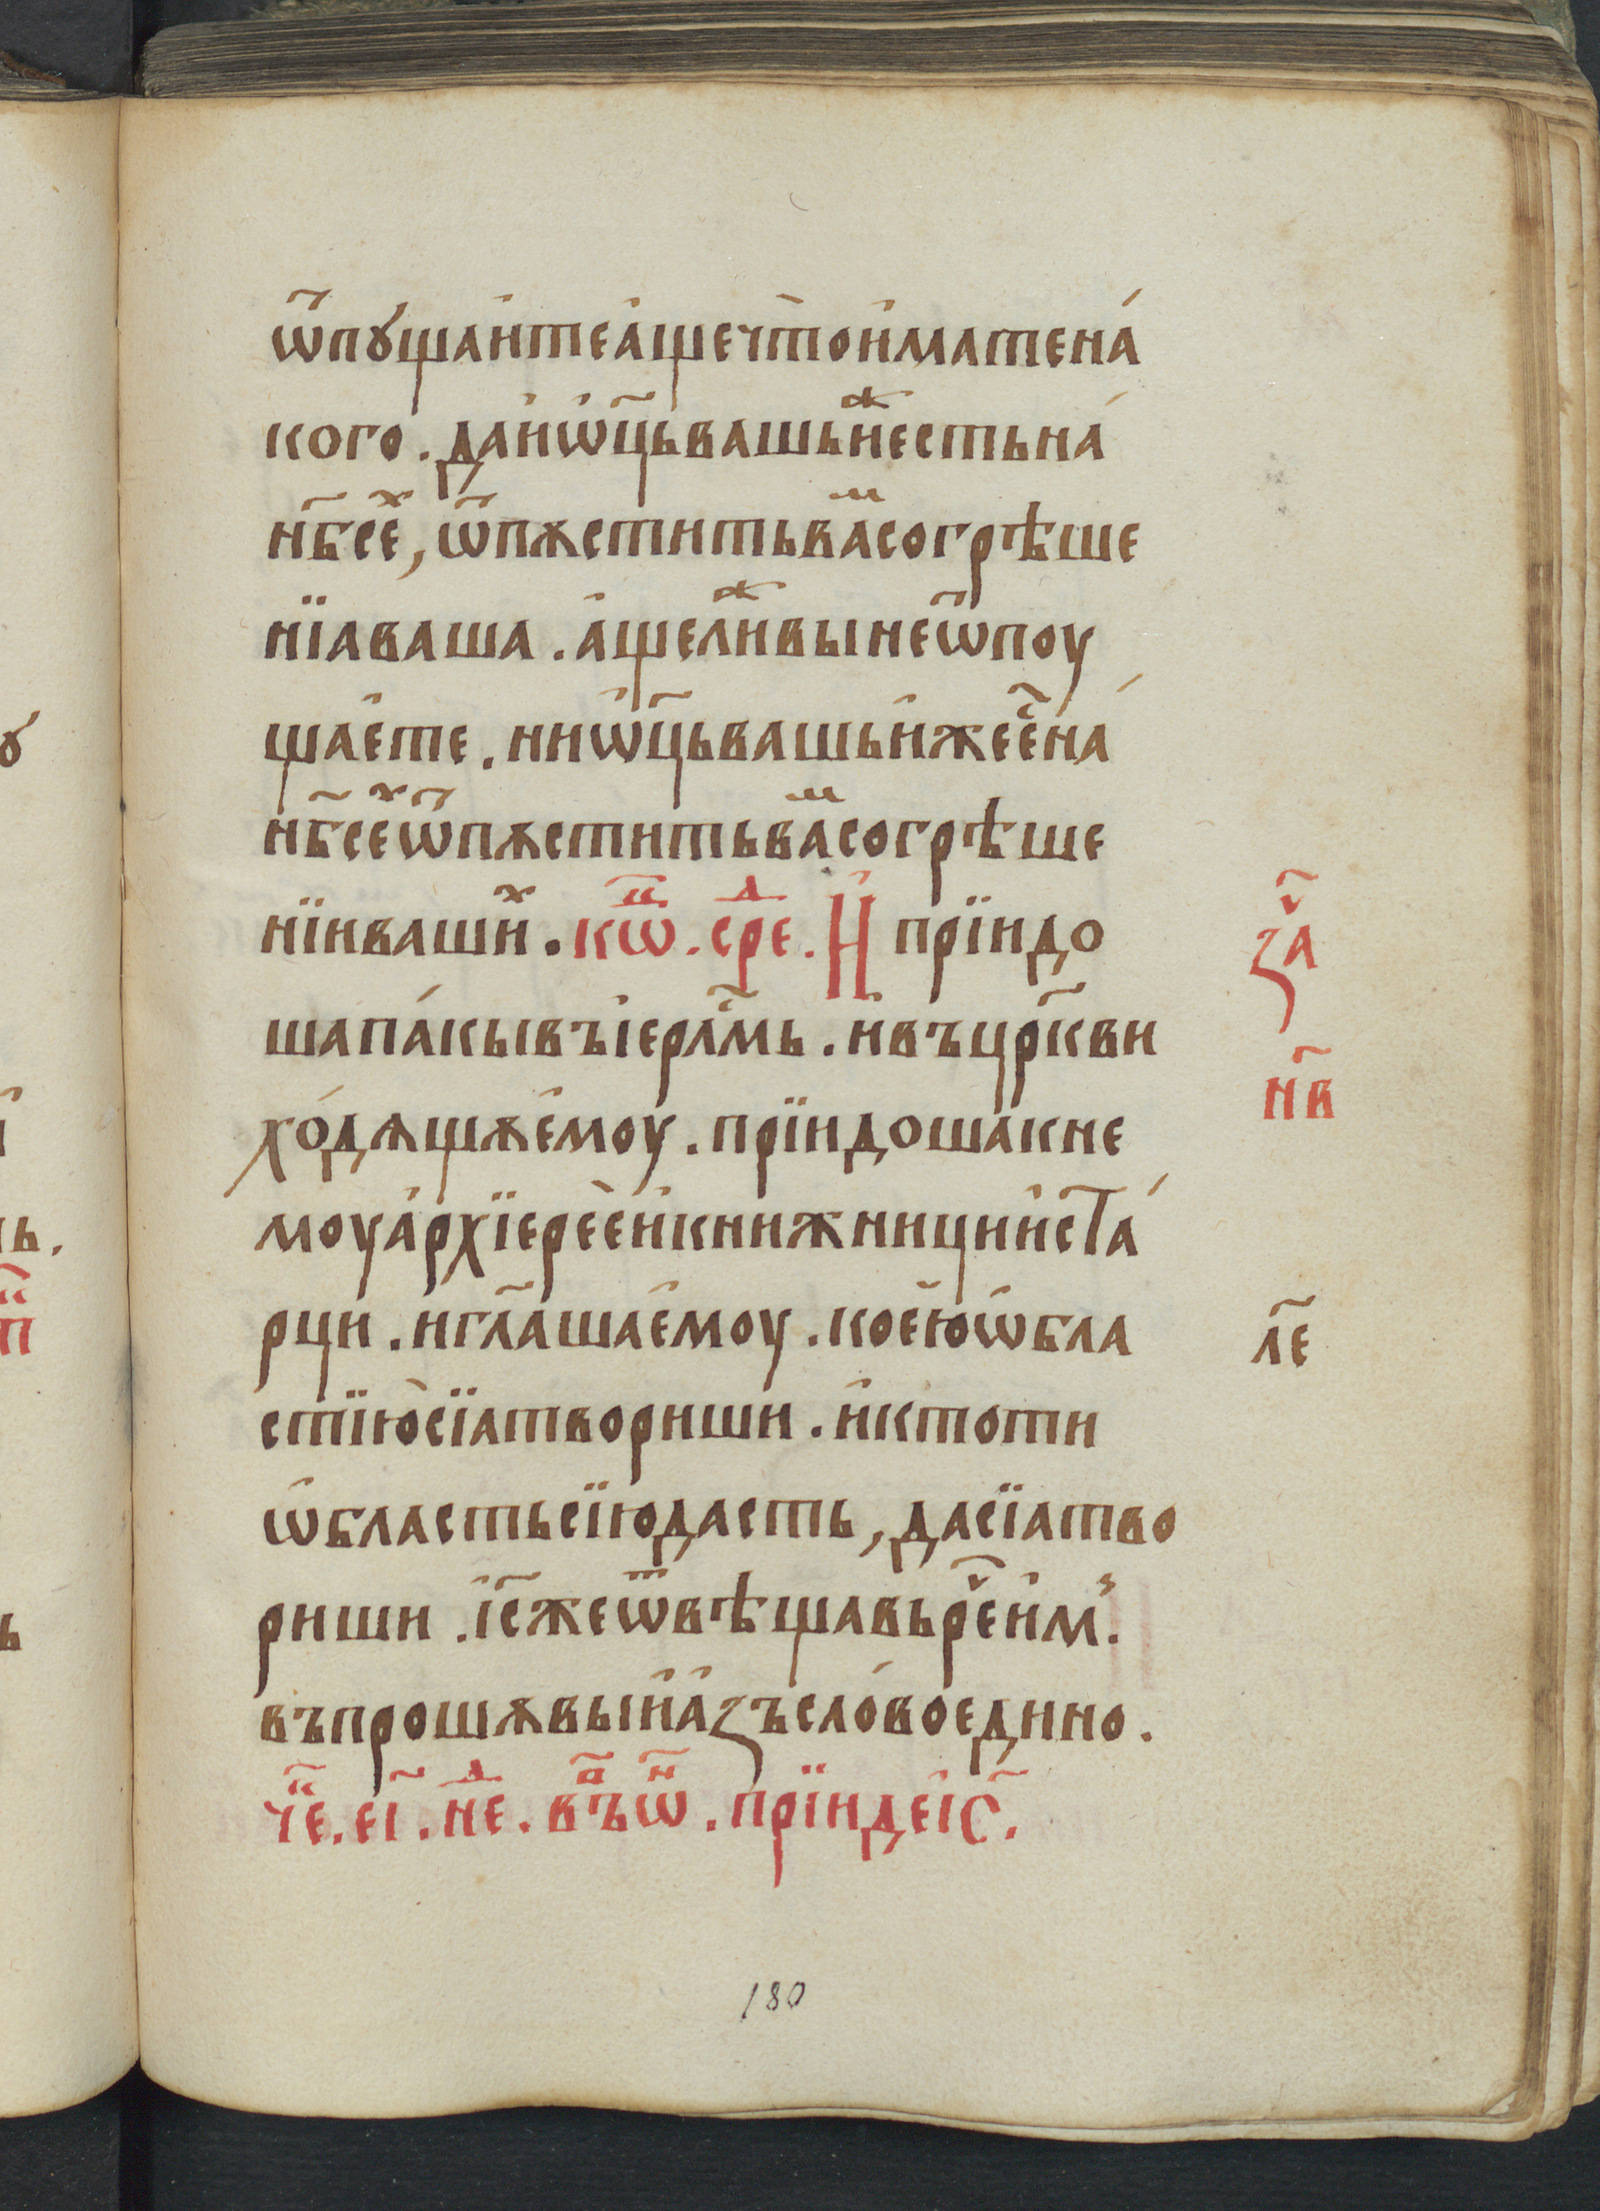 ѿпꙋщаи҆теа҆щечто̀и҆матена́
кого . даи҆ѡ҆ц҃ьвашьи҆ⷤестьна́
н҃бсеⷯ҇ , ѿпѫститьваⷨсогрѣше
нїаваша . а҆щелиⷤвынеѿпоу
щае҆те . ниѡ҆ц҃ьвашьи҆жееⷭ҇на́
н҃бсеⷯ҇ѿпѫститьваⷨсогрѣше
нїиваши́ⷯ . кѡⷩ҇ⷰ . среⷣ . И҆ прїидо
шапа́кывъі҆ерⷭ҇лмь . и҆въцр҃кви
хо́дѧщѫе҆моу . прїидоша́кне
моуа҆рхїере́еи҆книжници́и҆ста́
рци . иг҃лашае҆моу . кое҆юѡ҆бла
стїю̀сїатвориши . и҆ктоти
ѡ҆бластьсїюдасть , дасїатво
риши . і҆с҃жеѿвѣщавьрⷱ҇еи҆мⸯ .
въпрошѫвыи҆а҆зъсло́воедино .
чⷮ҇е . е҃і . неⷣ . въⷫ҇ѡⷩ҇ . прїидеі҆с҃ .
заⷱ҇
н҃в
л҃е
180